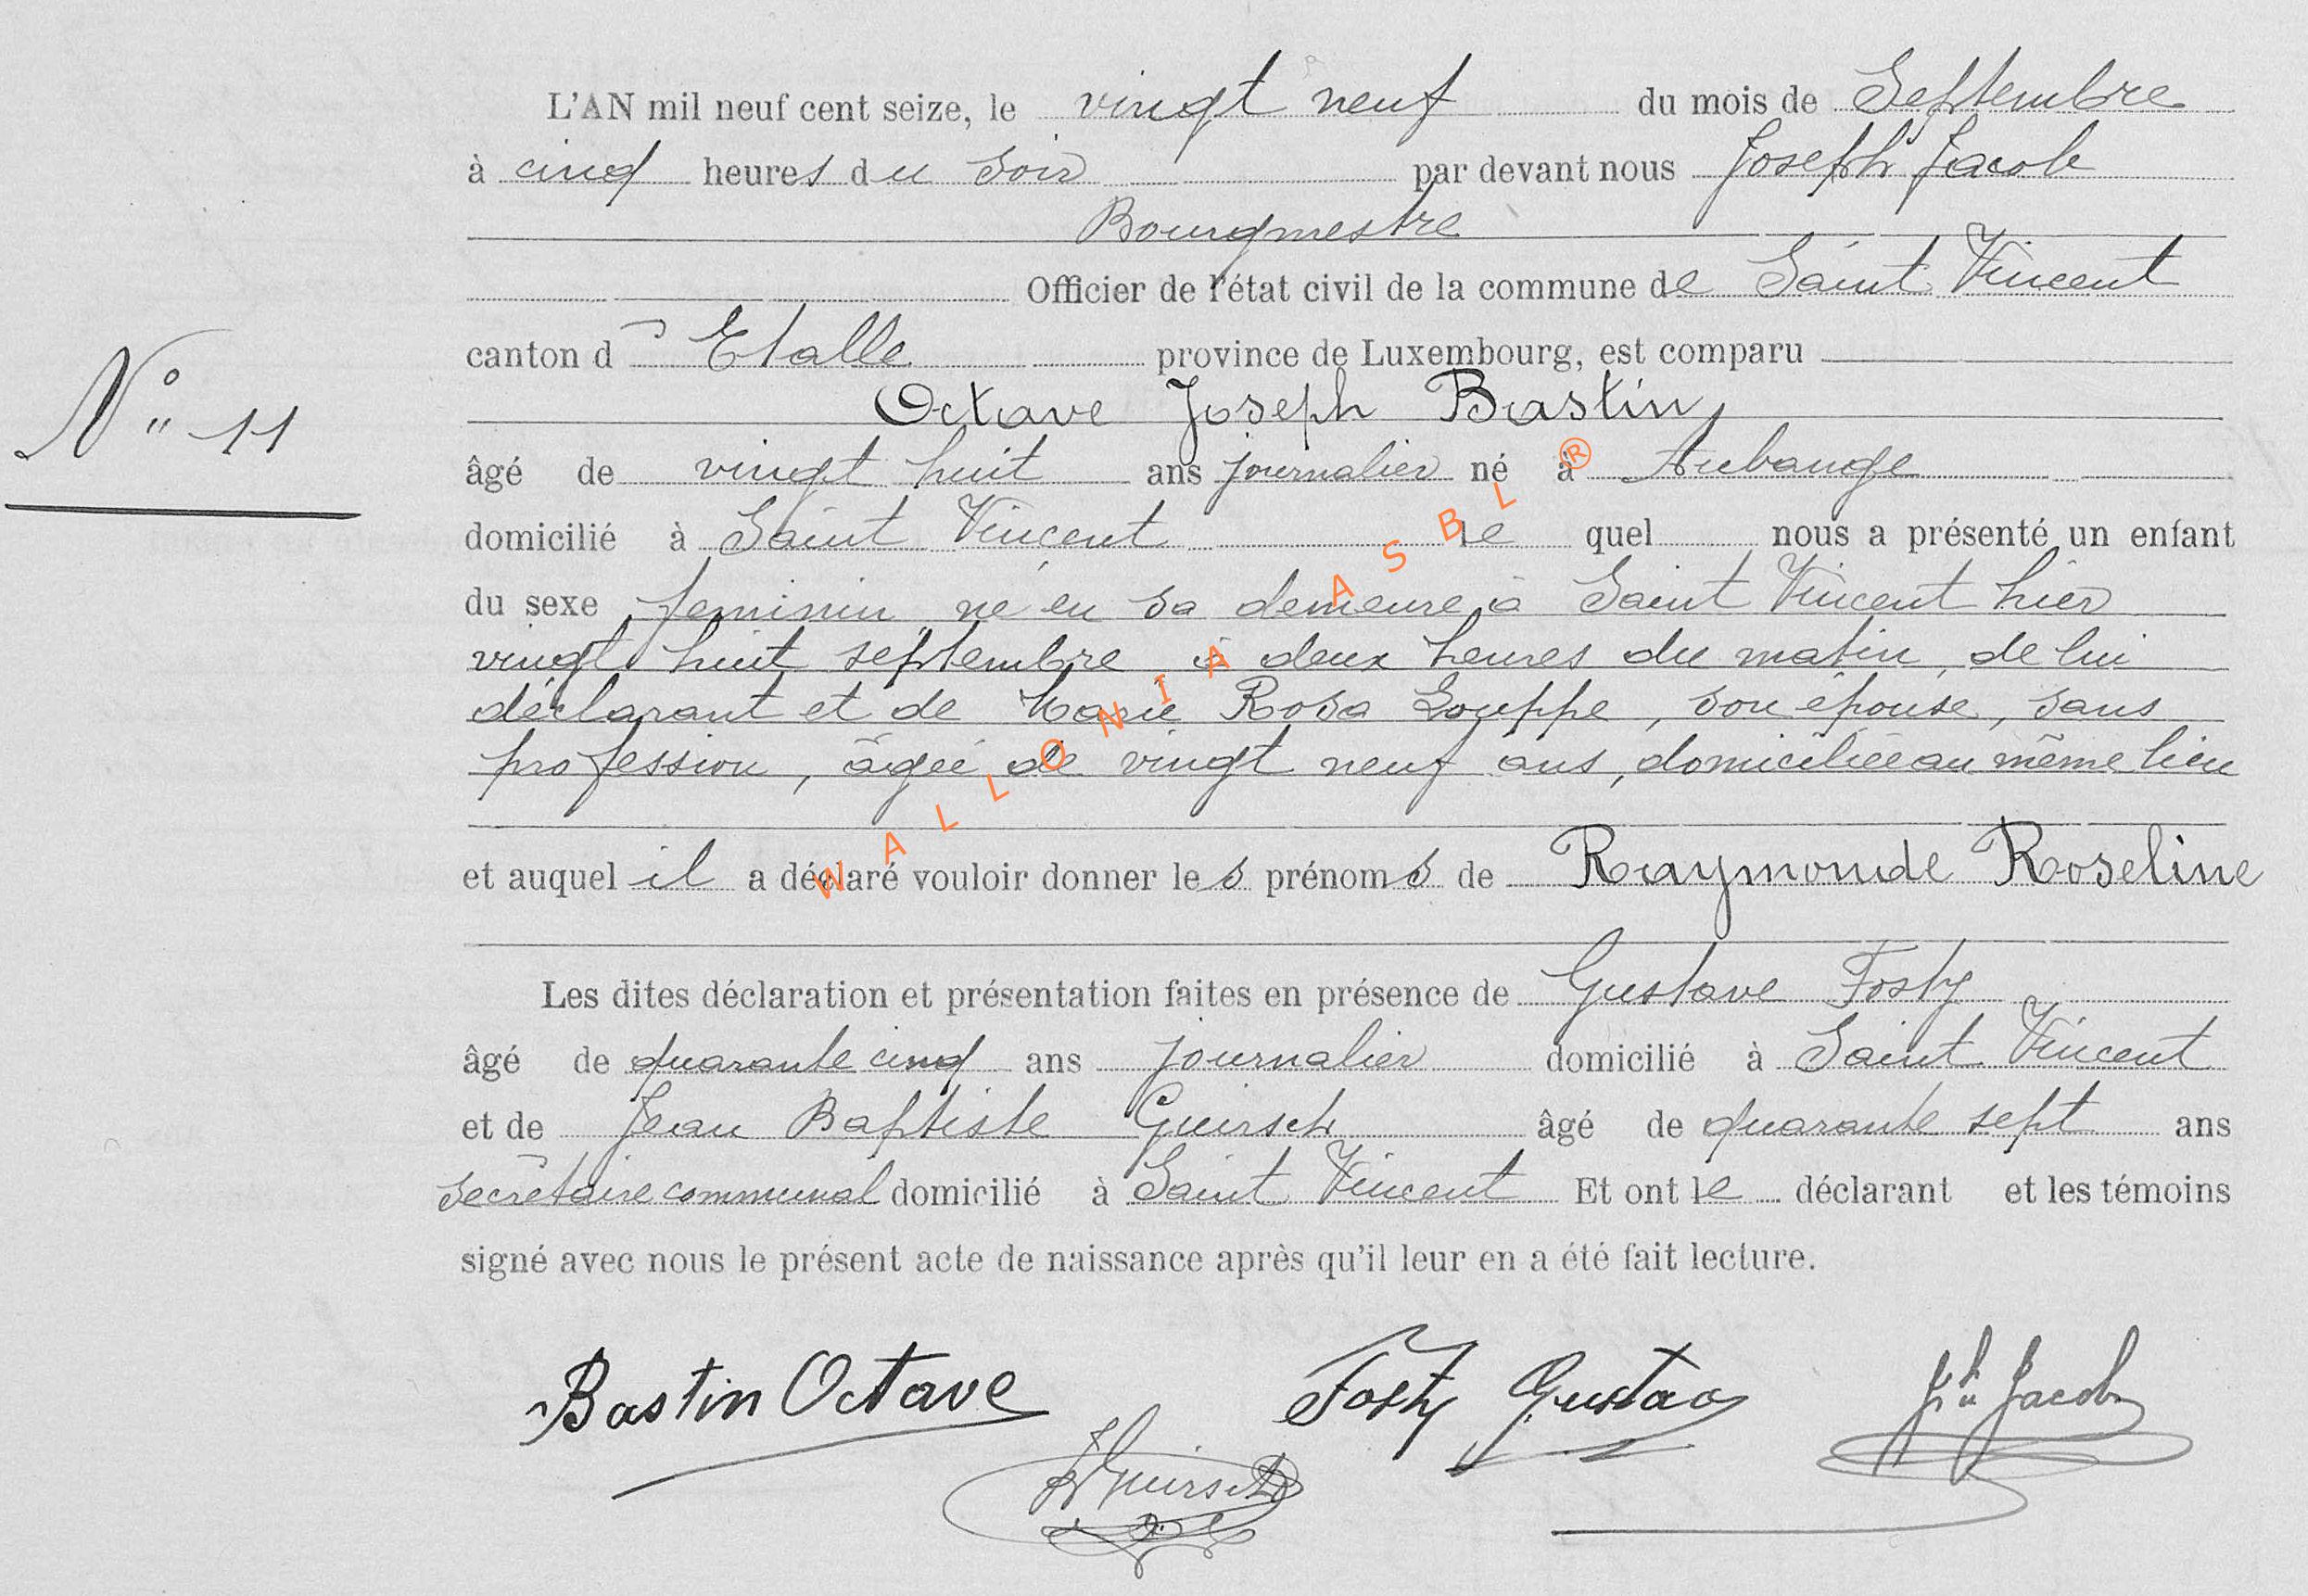 L'AN mil neuf cent seize, le vingt neuf du mois de Septembre
à cinq heures du soir par devant nous Joseph Jacob
Bourgmestre
Officier de l'état civil de la commune de Saint Vincent
canton d Etalle province de Luxembourg, est comparu
Octave Joseph Bastin,
N° 11
âgé de vingt huit ans journalier né à Aubange
domicilié à Saint Vincent le quel nous a présenté un enfant
du sexe feminin né en sa demeure à Saint Vincent hier
vingt huit septembre à deux heures du matin, de lui
déclarant et de Marie Rosa Louppe, son épouse, sans
profession, âgée de vingt neuf ans, domiciliée au même lieu
et auquel il a déclaré vouloir donner les prénoms de Raymonde Roseline
Les dites déclaration et présentation faites en présence de Gustave Fosty
âgé de quarante cinq ans journalier domicilié à Saint Vincent
et de Jean Baptiste Guirsch âgé de quarante sept ans
secrétaire communal domicilié à Saint Vincent Et ont le déclarant et les témoins
signé avec nous le présent acte de naissance après qu'il leur en a été fait lecture.
Bastin Octave Fosty Gustav Jh Jacob
Guirsch
WALLONIA ASBL ®